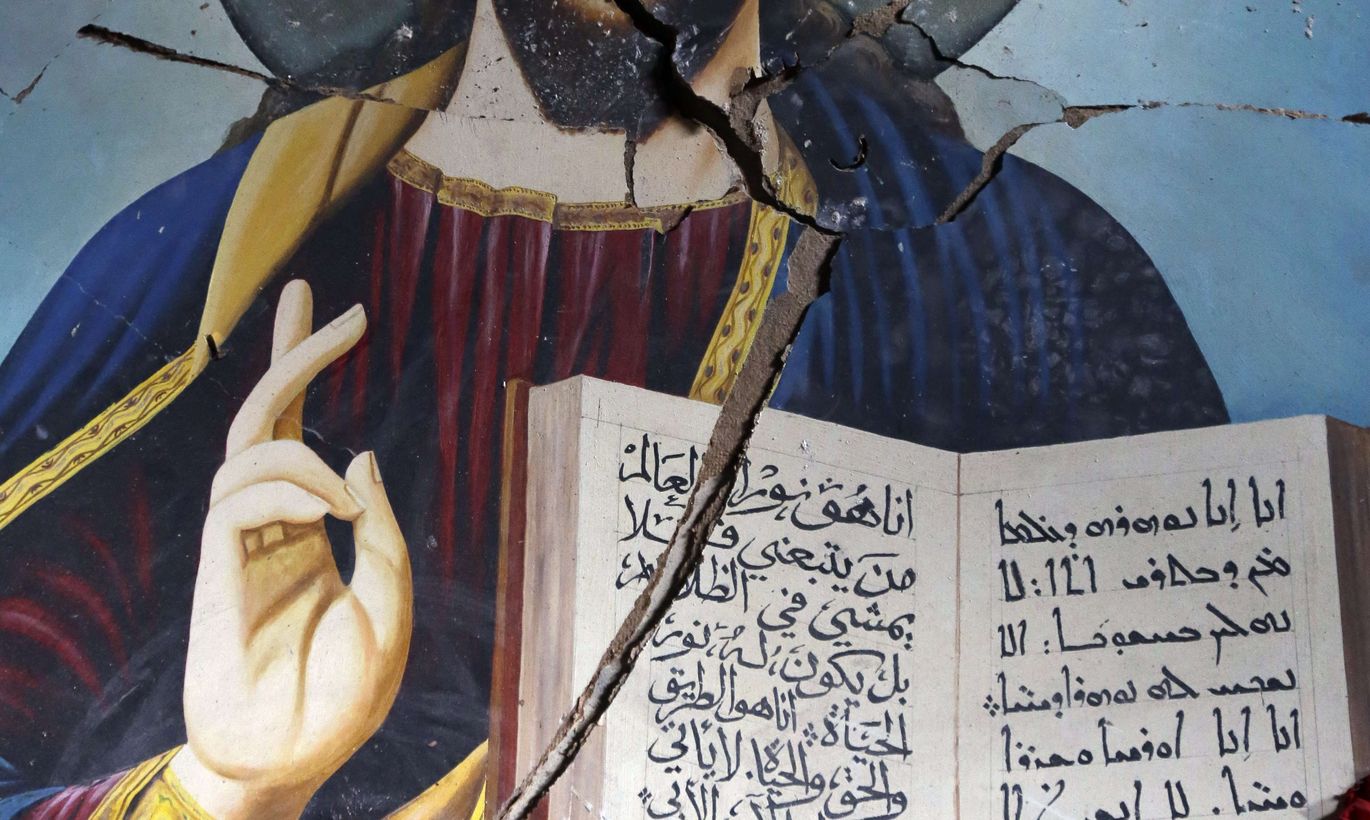 ܐܢܐ ܐܢܐ ܢܘܗܪܗ ܕܥܠܡܐ
ܡܢ ܕܒܬܪܝ ܐܬܐ: ܠܐ
ܢܗܠܟ ܒܚܫܘܟܐ: ܐܠܐ
ܢܫܟܚ ܠܗ ܢܘܗܪܐ ܕܚܝܐ܀
ܐܢܐ ܐܢܐ ܐܘܪܚܐ ܘܫܪܪܐ
ܘܚܝܐ. ܠܐ
انا هُوَ نورُ العالم
مَن يتبعني فلا
يمشي في الظلام
بل يكون له نور
الحيَاة ܀ انا هو الطريق
والحق والحياة. لا يأتي